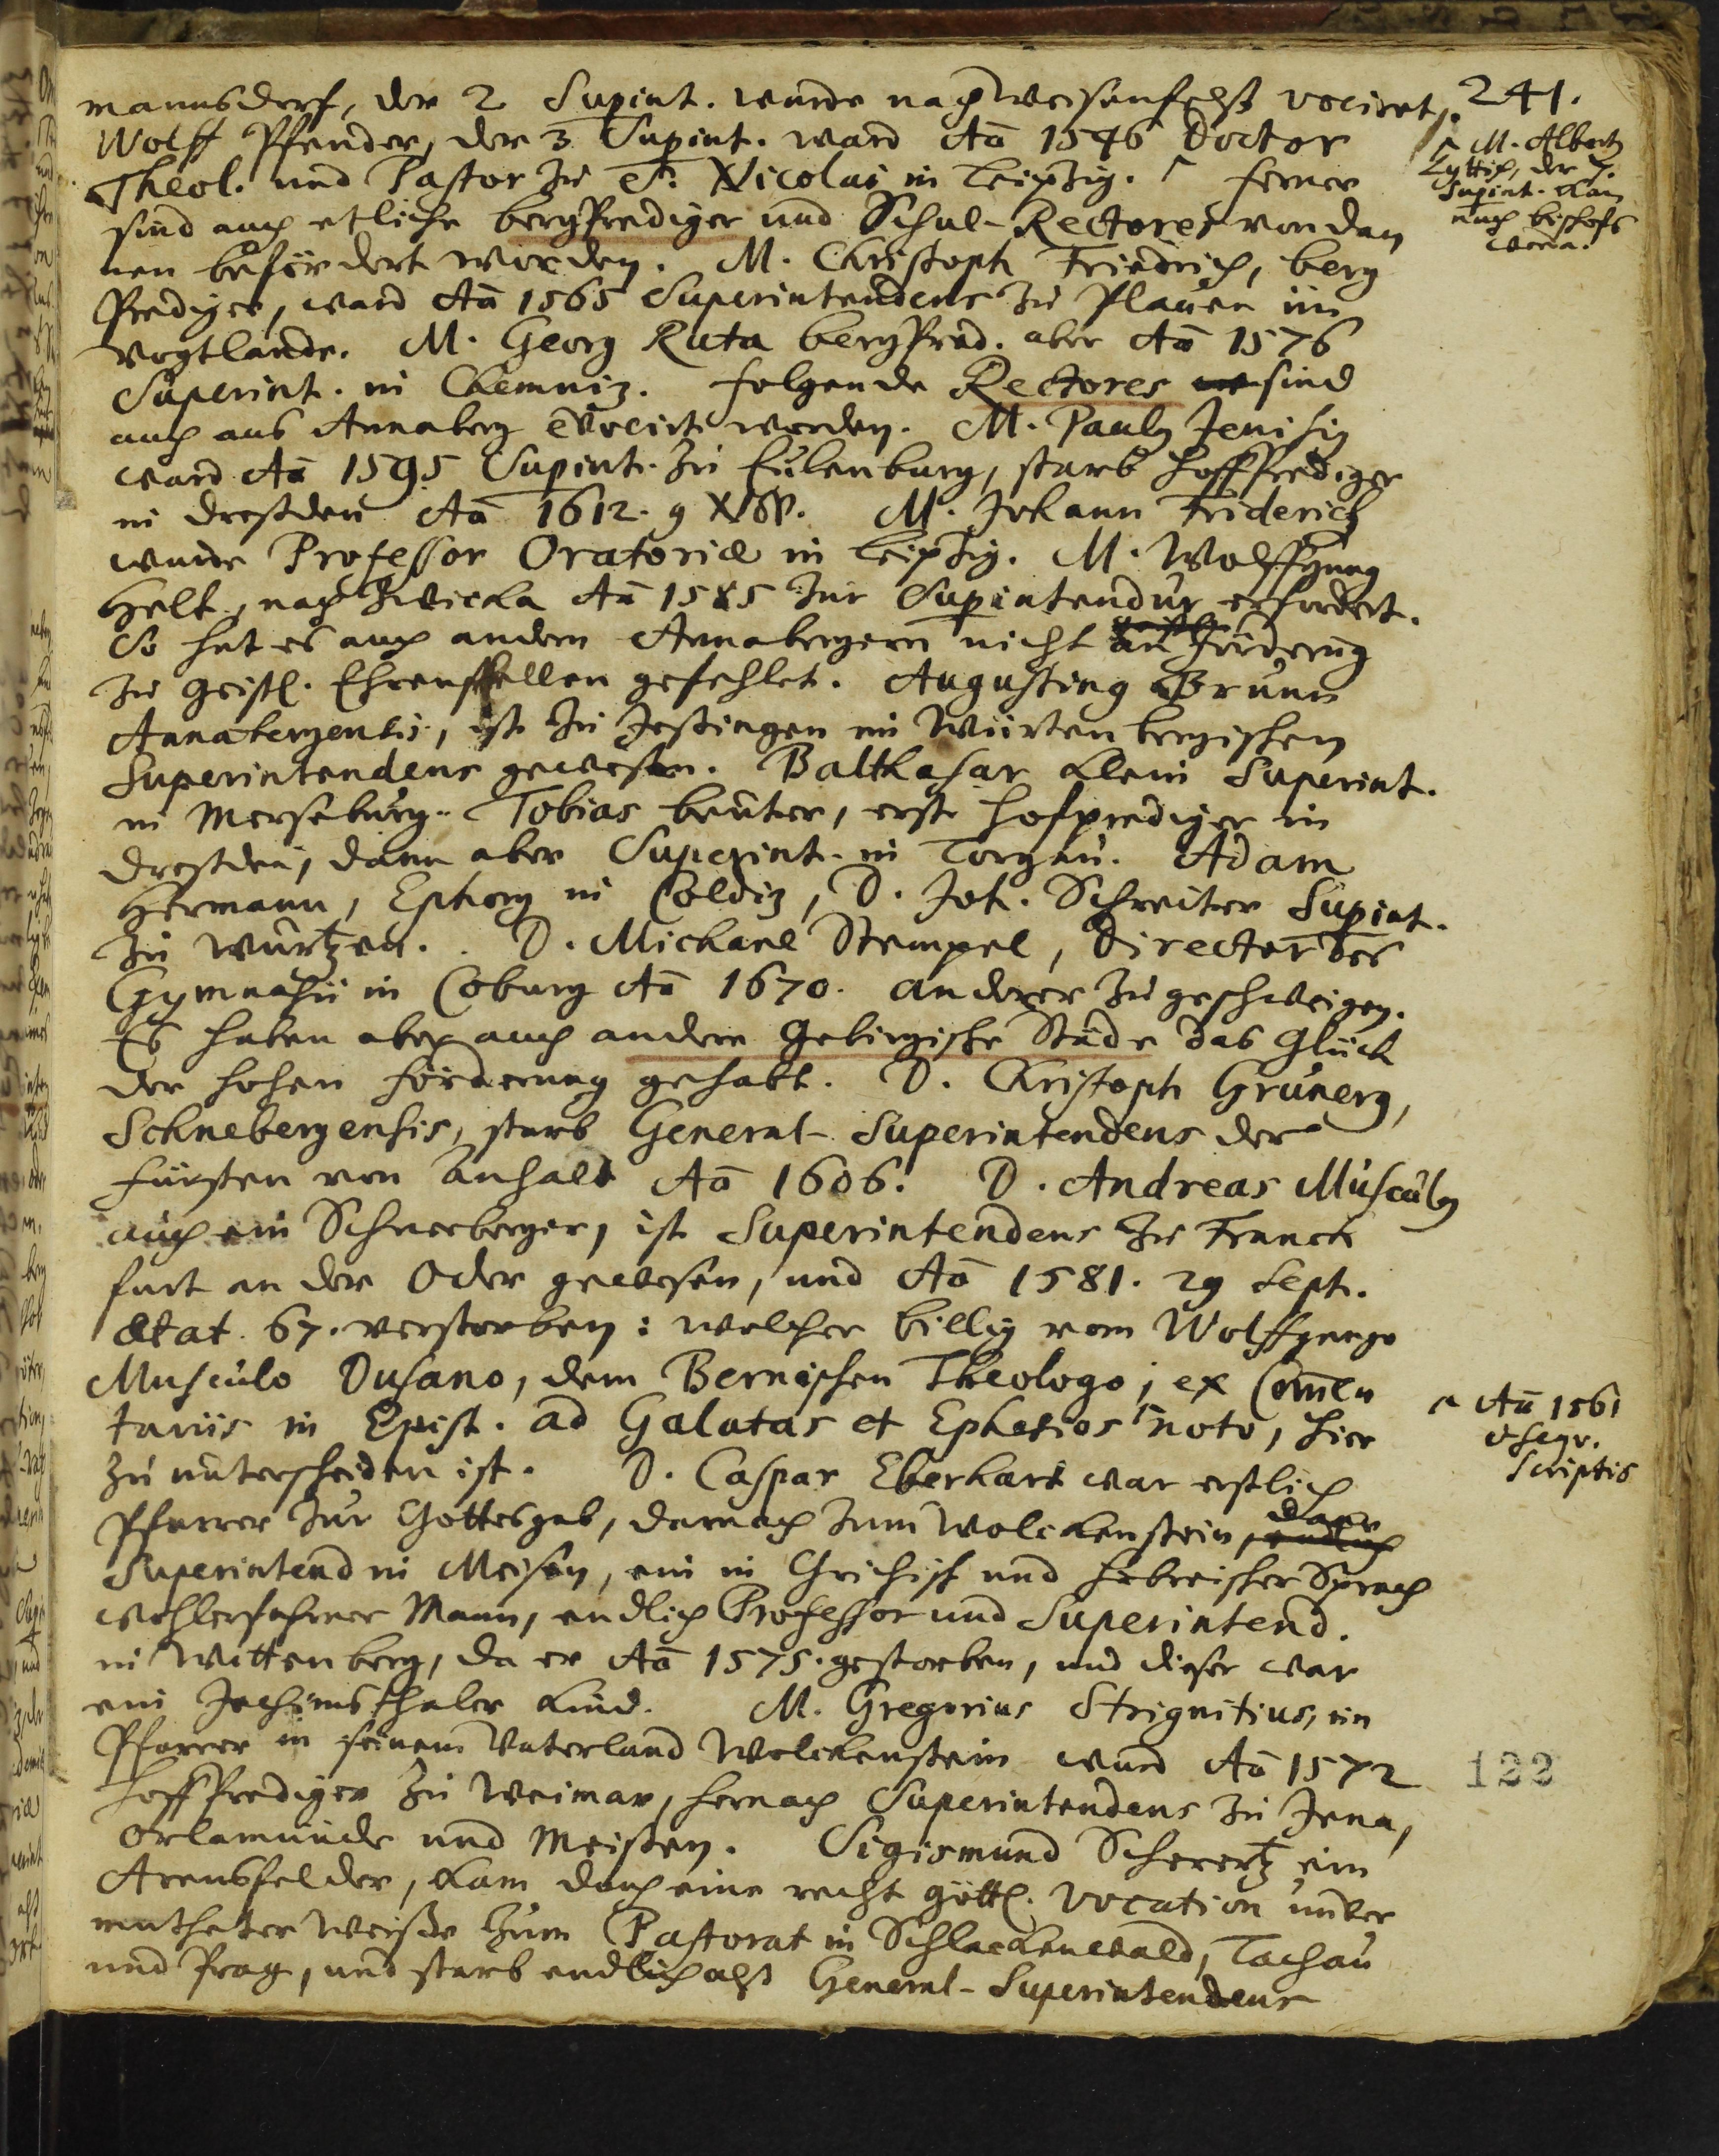 241.
mannsdorf, der 2 Supint. wurde nach Weisenfelß vociret,
Wolff Pfender, der 3 Supint. ward Aō 1546 Doctor
Theol. und Pastor zu S. Nicolai in Leipzig. ⌜ ferner
sind auch etliche bergPrediger und Schul-Rectores von dan
nen befördert worden. M. Christoph Friedrich, berg
Prediger, ward Aō 1565 Superintendens zu Plauen im
Vogtlande. M. Georg Ruta bergPred. aber Aō 1576
Superint. in Chemniz. folgende Rectores sind
auch aus Annaberg evocirt worden. M. Paulg Jenisig
ward Aō 1595 Supint. zu Eulenburg, starb HoffPrediger
in Dreßden Aō 1612. 9 Xbr. M. Johann Friderich
wurde Professor Oratoriæ in Leipzig. M. Wolffgang
Helt, nach Zwicka Aō 1585 zur Supintendur erfordert.
So hat es auch andern Annabergern nicht an förderung
zu geistl. Ehrenstellen gefehlet. Augusting Brunn
Annabergensis, ist zu Jessingen im Würtenbergischen
Superintendens gewesen. Balthasar Klein Superint.
in Merseburg. Tobias beuter, erst Hofprediger in
Dreßden, dann aber Superint. in Torgau. Adam
Hermann, Ephorg in Coldiz, D. Joh. Schreiter Supint.
zu Wurtzen. D. Michael Stempel, Director des
Gymnasii in Coburg Aō 1670. anderer zu geschweigen.
Es haben aber auch andere Gebirgische Städe das Glück
der hohen förderung gehabt. D. Christoph Grunerg,
Schnebergensis, starb General-Superintendens der
Fürsten von Anhalt Aō 1606. D. Andreas Musculg
auch ein Schneeberger, ist Superintendens zu Franck
furt an der Oder gewesen, und Aō 1581. 29 Sept.
ætat. 67. verstorben: welcher billig vom Wolffgango
Musculo Dusano, dem Bernischen Theologo, ex Com̄en
tariis in Epist. ad Galatas et Ephesios ⌜ noto, hier
zu unterscheiden ist. D. Caspar Eberhart war erstlich
Pfarrer zur Gottesgab, darnach zum Wolckenstein, dann
Superintend in Meisen, ein in Grichisch und Hebreischer Sprach
wohlerfahrner Mann, endlich Professor und Superintend.
in Wittenberg, da er Aō 1575. gestorben, und dieser war
ein Jochimsthaler Kind. M. Gregorius Strignitius, ein
Pfarrer in seinem Vaterland Wolckenstein ward Aō 1572
HoffPrediger zu Weimar, hernach Superintendens zu Jena,
Orlamünde und Meissen. Sigismund Scherertz ein
Arensfelder, kam durch eine recht göttl. vocation unver
mutheter Weisse zum Pastorat in Schlackenwald, Tachau
und Prag, und starb endlich alß General-Superintendens
⌜ M. Albert
Lyttich, der 7.
Supint. kam
nach Bischofs
werda.
⌜ Aō 1561
Scriptis
122